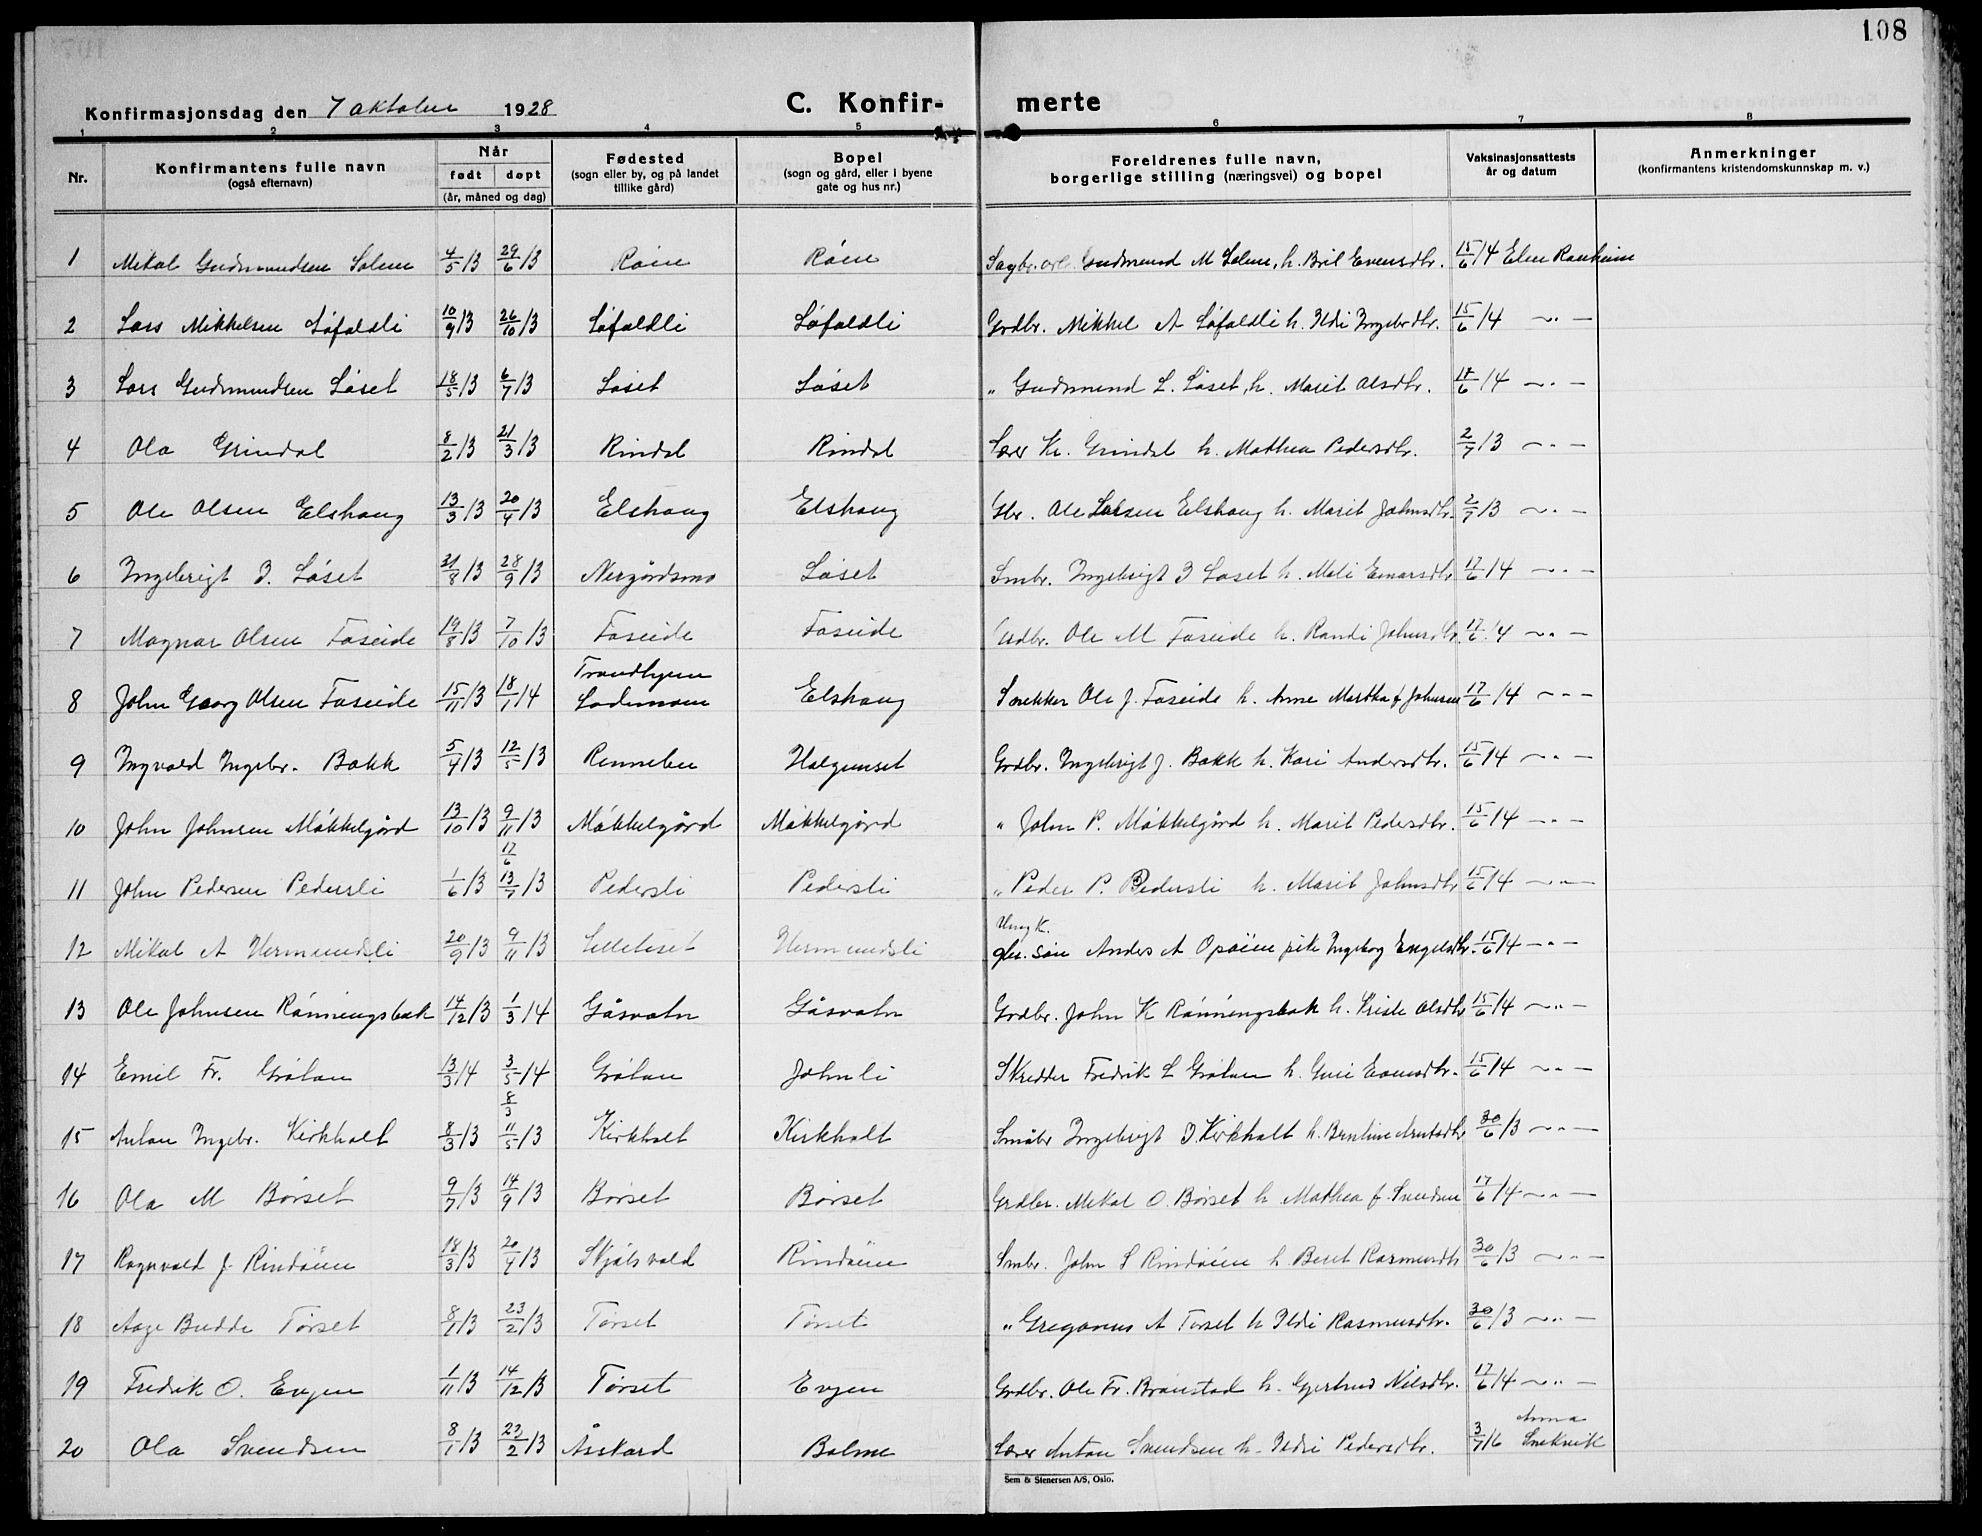 108
Konfirmasjonsdag den 7 oktober 1928 C. Konfir- merte
1 2 3 4 5 6 7 8
Nr. Konfirmantens fulle navn (også efternavn) Når født døpt (år, måned og dag) Fødested (sogn eller by, og på landet tillike gård) Bopel (sogn og gård, eller i byene gate og hus nr.) Foreldrenes fulle navn, borgerlige stilling (næringsvei) og bopel Vaksinasjonsattests år og datum Anmerkninger (konfirmantens kristendomskunnskap m. v.)
1 Mikal Gudmundsen Solem 4/5 13 29/6 13 Røen Røen Gudmund M Solem, h. Brit Evensdtr. 15/6 14 Elen Ranheim
2 Lars Mikkelsen Løfaldli 10/9 13 26/10 13 Løfaldli Løfaldli Grdbr. Mikkel A Løfaldli h. Ildri Ingebrdtr. 15/6 14 —"—
3 Lars Gudmundsen Løset 18/5 13 6/7 13 Løset Løset " Gudmund L. Løset, h. Marit Olsdtr. 17/6 14 —"—
4 Ola Grindal 8/2 13 21/3 13 Rindal Rindal Lærer Kr. Grindal h. Mathea Pedersdtr. 2/7 13 —"—
5 Ole Olsen Elshaug 13/3 13 20/4 13 Elshaug Elshaug Gbr. Ole Larsen Elshaug h. Marit Johnsdtr. 2/7 13 —"—
6 Ingebrigt I. Løset 21/8 13 28/9 13 Nergårdsmo Løset Smbr. Ingebrigt I Løset h. Mali Einarsdtr 17/6 14 —"—
7 Magnar Olsen Faseide 19/8 13 7/10 13 Faseide Faseide Grdbr. Ole M Faseide h. Randi Johnsdtr 17/6 14 —"—
8 John Georg Olsen Faseide 15/11 13 18/1 14 Trondhjem Lademoen Elshaug Snekker Ole J. Faseide h. Anne Martha f Johnsen 17/6 14 —"—
9 Ingvald Ingebr. Bakk 5/4 13 12/5 13 Rennebu Halgunset Grdbr. Ingebrigt J. Bakk h. Kari Andersdtr. 15/6 14 —"—
10 John Johnsen Møkkelgård 13/10 13 9/11 13 Møkkelgård Møkkelgård " John P. Møkkelgård h. Marit Pedersdtr. 15/6 14 —"—
11 John Pedersen Pedersli 1/6 13 17/6 13/7 13 Pedersli Pedersli " Peder P. Pedersli h. Marit Johnsdtr 15/6 14 —"—
12 Mikal A Hermundsli 20/9 13 9/11 13 Lilleløset Hermundsli Ungk. Anders A Opøien pike Ingeborg Engelsdtr. 15/6 14 —"—
13 Ole Johnsen Rønningsbakk 14/12 13 1/3 14 Gåsvatn Gåsvatn Grdbr. John K Rønningsbakk h. Kristi Olsdtr 15/6 14 —"—
14 Emil Fr. Grølan 13/3 14 3/5 14 Grølan Johnli Skredder Fredrik L Grølan h. Guri Evensdtr. 15/6 14 —"—
15 Anton Ingebr. Kirkholt 8/3 13 8/3 11/5 13 Kirkholt Kirkholt Småbr Ingebrigt I. Kirkholt h. Berntine Arntsdtr 30/6 13 —"—
16 Ola M Børset 9/7 13 14/9 13 Børset Børset Grdbr. Mikal O. Børset h Mathea f. Svendsen 17/6 14 —"—
17 Ragnvald J. Rindøien 18/3 13 20/4 13 Skjølsvold Rindøien Smbr. John S Rindøien h. Beret Rasmusdtr 30/6 13 —"—
18 Aage Budde Tørset 8/1 13 23/2 13 Tørset Tørset " Gregorius A Tørset h Ildri Rasmusdtr. 30/6 13 —"—
19 Fredrik O. Evjen 1/11 13 14/12 13 Tørset Evjen Grdbr. Ole Fr. Brønstad h. Gjertrud Nilsdtr. 17/6 14 —"—
20 Ola Svendsen 8/1 13 23/2 13 Åsskard Bolme Lærer Anton Svendsen h. Ildri Pedersdtr. 3/7 16 Anna Snekvik
Sem & Stenersen A/S, Oslo.